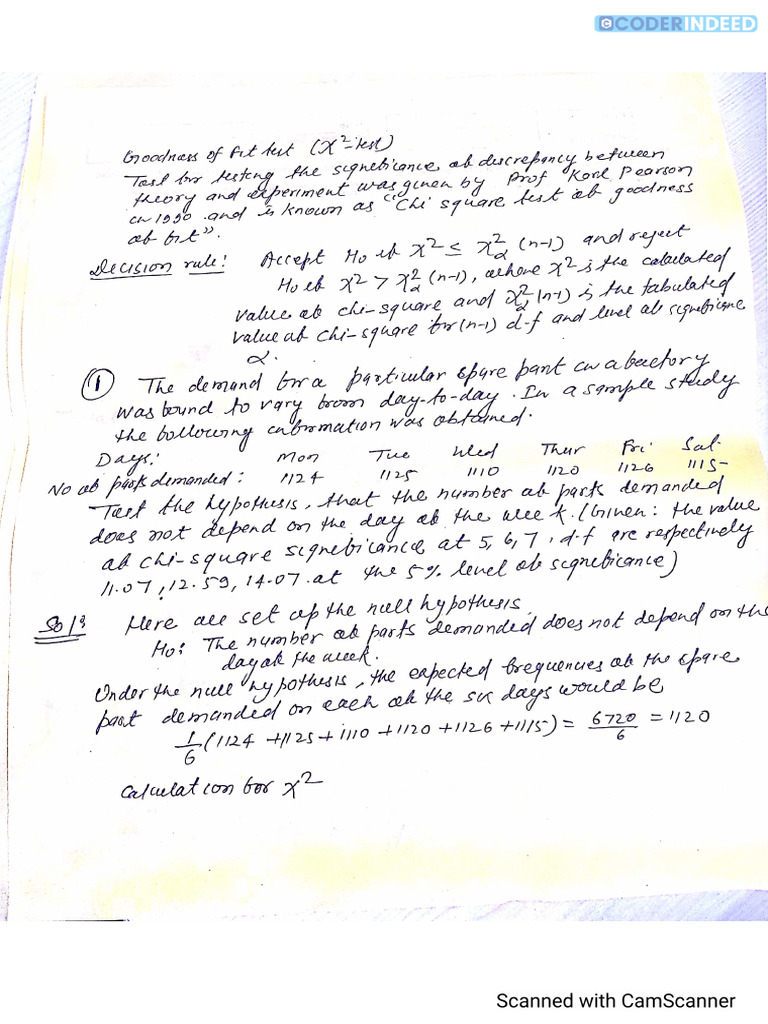 CODERINDEED
Goodness of fit test (χ²-test)
Test for testing the significance of discrepancy between
theory and experiment was given by Prof Karl Pearson
in 1990 and is known as "Chi square test of goodness
of fit".
Decision rule: Accept Ho if χ² ≤ χ²α (n-1) and reject
Ho if χ² > χ²α (n-1), where χ² is the calculated
value of chi-square and χ²α (n-1) is the tabulated
value of chi-square for (n-1) d.f and level of significance
α.
① The demand for a particular spare part in a factory
was found to vary from day-to-day. In a sample study
the following information was obtained.
Days: Mon Tue Wed Thur Fri Sat
No of parts demanded: 1124 1125 1110 1120 1126 1115
Test the hypothesis, that the number of parts demanded
does not depend on the day of the week. (Given: the value
of chi-square significance at 5, 6, 7, d.f are respectively
11.07, 12.59, 14.07 at the 5% level of significance)
Sol: Here we set up the null hypothesis
Ho: The number of parts demanded does not depend on the
day of the week.
Under the null hypothesis, the expected frequencies of the spare
part demanded on each of the six days would be
1/6 (1124 +1125 + 1110 +1120 +1126 +1115) = 6720/6 = 1120
Calculation for χ²
Scanned with CamScanner